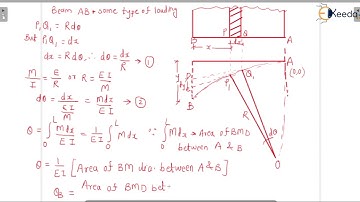 Beam AB + some type of loading
P₁Q₁ = Rdθ
But P₁Q₁ = dx
dx = Rdθ ∴ dθ = dx/R → ①
M/I = E/R or R = EI/M
dθ = dx/(EI/M) = Mdx/EI → ②
θ = ∫₀ᴸ Mdx/EI = 1/EI ∫₀ᴸ Mdx ∵ ∫Mdx → Area of BMD between A & B
θ = 1/EI [Area of BM dia. between A & B]
θB = Area of BMD bet-
Ekeeda
P Q
x dx
A
A
(0,0)
B
P₁ Q₁
R
dθ
O